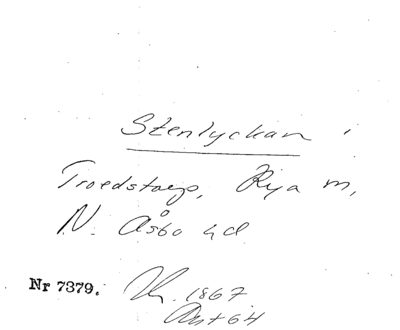 Stenlyckan
Troedstorp, Rya m,
N. Åsbo hd
Nr 7379. 1867
Ant 64